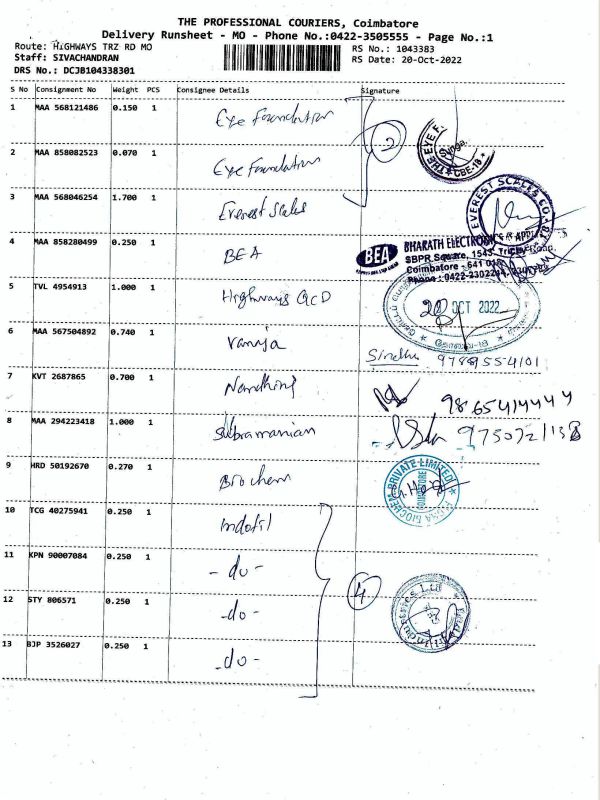 THE PROFESSIONAL COURIERS, Coimbatore
Delivery Runsheet - MO - Phone No.:0422-3505555 - Page No.:1
Route: HIGHWAYS TRZ RD MO
RS No.: 1043383
Staff: SIVACHANDRAN
RS Date: 20-Oct-2022
DRS No.: DCJB104338301
S No Consignment No Weight PCS Consignee Details Signature
1 MAA 568121486 0.150 1 Eye Foundation
2
2 MAA 858082523 0.070 1 Eye Foundation
THE EYE F
CBE-18
3 MAA 568046254 1.700 1 Everest Scales
EVEREST SCALES CO.
4 MAA 858280499 0.250 1 BEA
BEA BHARATH ELECTRONICS & APPLIANCES
SBPR Square, 1543, Trichy Road,
Coimbatore - 641 018
Phone : 0422-2302214,
5 TVL 4954913 1.000 1 Highways QCD
20 OCT 2022
6 MAA 567504892 0.740 1 Vanija
Sindhu
7 KVT 2687865 0.700 1 Nandhini
9865414444
8 MAA 294223418 1.000 1 Subramanian
9 HRD 50192670 0.270 1 Biochem
BIOCHEM PRIVATE LIMITED
COIMBATORE
10 TCG 40275941 0.250 1 Indofil
11 KPN 90007084 0.250 1 - do -
4
12 STY 806571 0.250 1 - do -
13 BJP 3526027 0.250 1 - do -